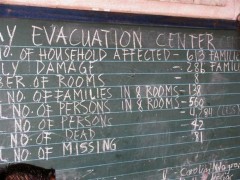 Y EVACUATION CENTER
NO. OF HOUSEHOLD AFFECTED - 613 FAMILIE
LY DAMAGE - 286 FAMILI
BER OF ROOMS - 8
NO. OF FAMILIES IN 8 ROOMS - 138
NO. OF PERSONS IN 8 ROOMS - 569
NO. OF PERSONS
NO. OF DEAD - 42
NO. OF MISSING - 31